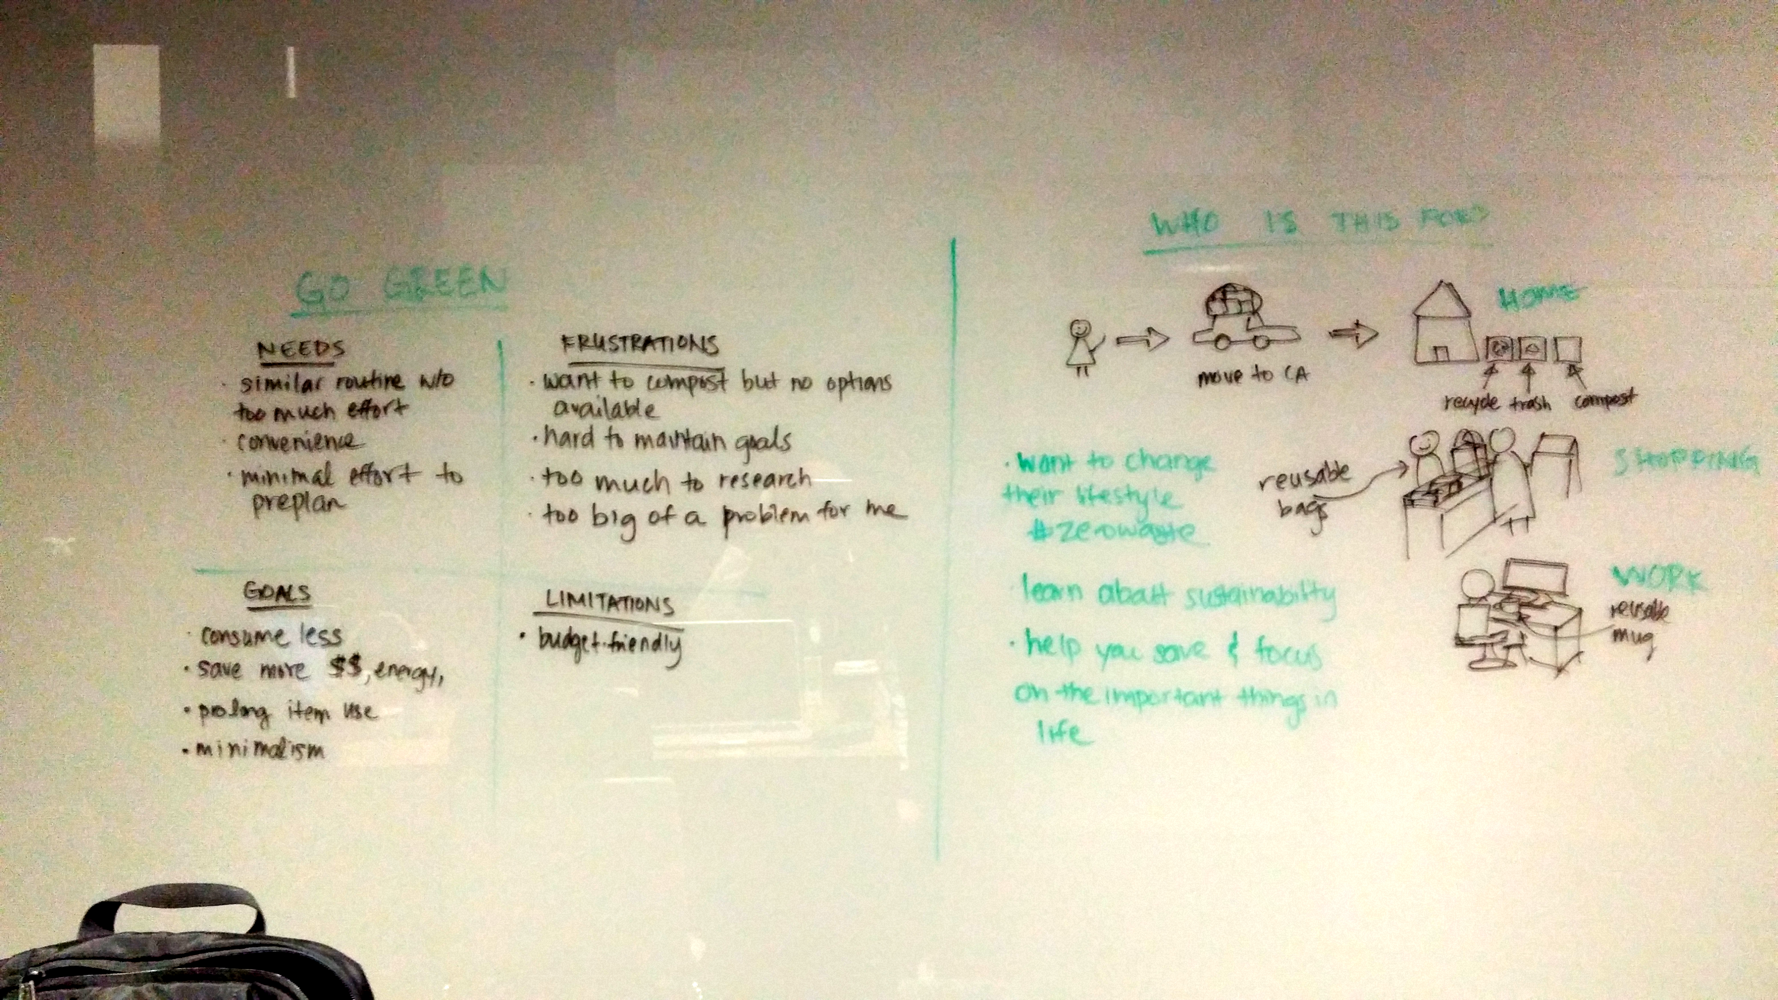 GO GREEN
NEEDS
· similar routine w/o
too much effort
· convenience
· minimal effort to
preplan
FRUSTRATIONS
· want to compost but no options
available
· hard to maintain goals
· too much to research
· too big of a problem for me
GOALS
· consume less
· save more $$, energy,
· prolong item use
· minimalism
LIMITATIONS
· budget-friendly
WHO IS THIS FOR?
move to CA
HOME
recycle trash compost
· want to change
their lifestyle
#zerowaste
learn about sustainability
· help you save & focus
on the important things in
life
reusable
bags
SHOPPING
WORK
reusable
mug